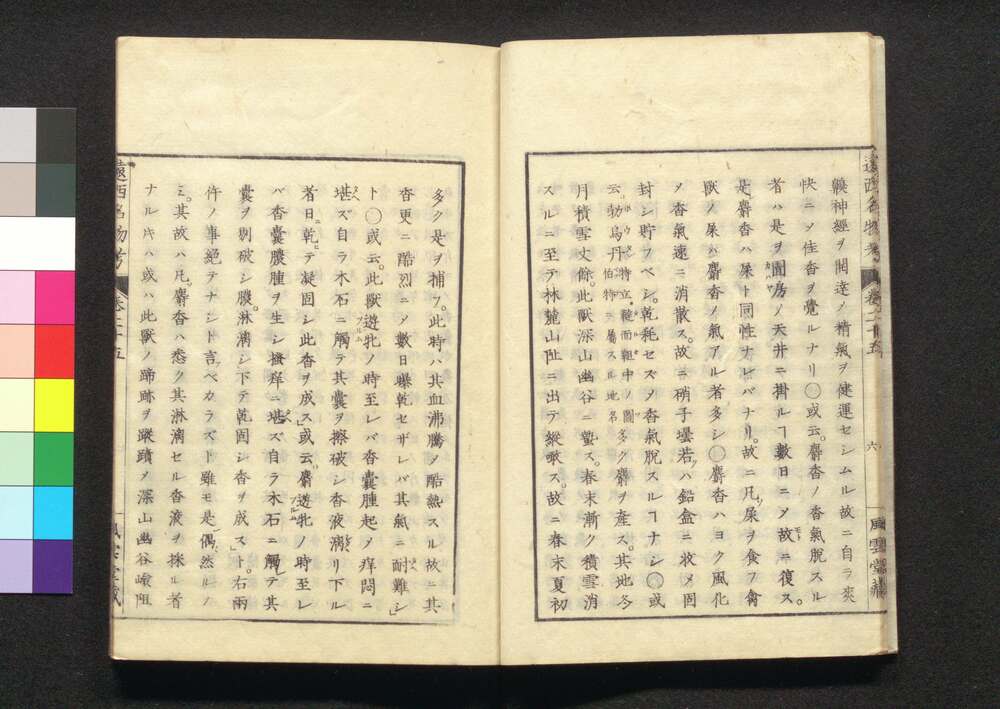 襪神經ヲ開達ノ精氣ヲ健運セシムル故ニ自ラ爽
快ニノ佳香ヲ覺ルナリ〇或云。麝香ノ香氣脱スル
者ハ是ヲ圊房ノ天井ニ掛ルヿ數日ニノ故ニ復ス。
是麝香ハ屎ト同性ナレバナリ。故ニ凡屎ヲ食フ禽
獸ノ屎ハ麝香ノ氣アル者多シ〇麝香ハヨク風化
ノ香氣速ニ消散ス。故ニ硝子罎若ハ鉛盒ニ收メ固
封シ貯フベシ。乾耗セズノ香氣脱スルヿナシ〇或
云。勃烏丹伯特ニ屬スル地名特立韃而靼中ノ國多ク麝ヲ産ス。其地冬
月積雪丈餘。此獸深山幽谷ニ蟄ス。春末漸ク積雪消
スルニ至テ林麓山趾ニ出テ縱歌ス。故ニ春末夏初
遠西名物考 卷二十五 六 風雲堂藏
多ク是ヲ捕フ。此時ハ其血沸騰ノ酷熱スル故ニ其
香更ニ酷烈ニノ數日曝乾セザレバ其氣ニ耐難シ」
ト〇或云。此獸遊牝ノ時至レバ香囊腫起ノ痒悶ニ
堪ズ自ラ木石ニ觸テ其囊ヲ擦破シ香液漓リ下ル
者日ニ乾テ凝固シ此香ヲ成ス」或云麝遊牝ノ時至レ
バ香囊膿腫ヲ生シ搔痒ニ堪ズ自ラ木石ニ觸テ其
囊ヲ剔破シ膿淋漓シ下テ乾固シ香ヲ成ス」ト。右兩
件ノ事絶テナシト言ベカラズト雖モ是偶然ルノ
ミ。其故ハ凡麝香ハ悉ク其淋漓セル香液ヲ採ル者
ナルキハ或ハ此獸ノ蹄跡ヲ蹤蹟ノ深山幽谷嶮阻
遠西名物考 卷二十五 風雲堂藏